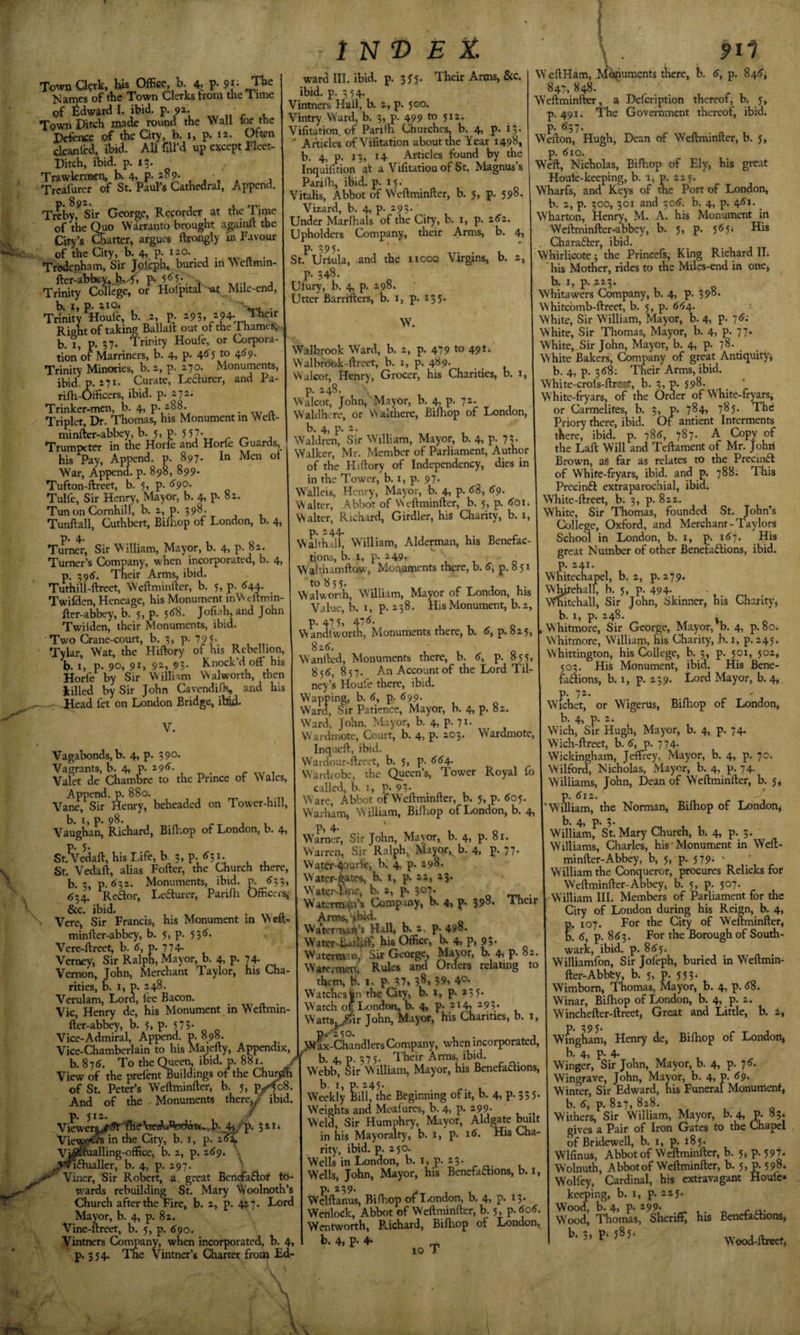 INDEX.
917
Town Clerk, his Office, b. 4, p. 91. The
Names of the Town Clerks from the Time
of Edward I. ibid. p. 92.
Town Ditch made round the Wall for the
Defence of the City, b. 1, p. 12. Often
cleansed, ibid. All fill'd up except Fleet-
Ditch, ibid. p. 13.
Trawlermen, b. 4, p. 289.
Treasurer of St. Paul's Cathedral, Append.
p. 892.
Treby, Sir George, Recorder at the Time
of the Quo Warranto brought against the
City's Charter, argues strongly in Favour
of the City, b. 4, p. 120.
Tredenham, Sir Joseph, buried in Westmin-
ster-abbey, b. 5, p. 565.
Trinity College, or Hospital at Mile-end,
b. 1, p. 210.
Trinity House, b. 2, p. 293, 294. Their
Right of taking Ballast out of the Thames,
b. 1, p. 37. Trinity House, or Corpora-
tion of Marriners, b. 4, p. 465 to 469.
Trinity Minories, b. 2, p. 270. Monuments,
ibid. p. 271. Curate, Lecturer, and Pa-
rish-Officers, ibid. p. 272.
Trinker-men, b. 4, p. 288.
Triplet, Dr. Thomas, his Monument in West-
minster-abbey, b. 5, p. 557.
Trumpeter in the Horse and Horse Guards,
his Pay, Append. p. 897. In Men of
War, Append. p. 898, 899.
Tufton-street, b. 5, p. 690.
Tulse, Sir Henry, Mayor, b. 4, p. 82.
Tun on Cornhill, b. 2, p. 398.
Tunstall, Cuthbert, Bishop of London, b. 4,
p. 4.
Turner, Sir William, Mayor, b. 4, p. 82.
Turner's Company, when incorporated, b. 4,
p. 396. Their Arms, ibid.
Tuthill-street, Westminster, b. 5, p. 644.
Twisden, Heneage, his Monument in Westmin-
ster-abbey, b. 5, p. 568. Josiah, and John
Twisden, their Monuments, ibid.
Two Crane-court, b. 3, p. 795.
Tylar, Wat, the History of his Rebellion,
b. 1, p. 90, 91, 92, 93. Knock'd off his
Horse by Sir William Walworth, then
killed by Sir John Cavendish, and his
Head set on London Bridge, ibid.
V.
Vagabonds, b. 4, p. 390.
Vagrants, b. 4, p. 296.
Valet de Chambre to the Prince of Wales,
Append. p. 880.
Vane, Sir Henry, beheaded on Tower-hill,
b. 1, p. 98.
Vaughan, Richard, Bishop of London, b. 4,
p. 5.
St. Vedast, his Life, b. 3, p. 631.
St. Vedast, alias Foster, the Church there,
b. 3, p. 632. Monuments, ibid. p. 633,
634. Rector, Lecturer, Parish Officers,
&c. ibid.
Vere, Sir Francis, his Monument in West-
minster-abbey, b. 5, p. 536.
Vere-street, b. 6, p. 774.
Verney, Sir Ralph, Mayor, b. 4, p. 74.
Vernon, John, Merchant Taylor, his Cha-
rities, b. 1, p. 248.
Verulam, Lord, see Bacon.
Vic, Henry de, his Monument in Westmin-
ster-abbey, b. 5, p. 573.
Vice-Admiral, Append. p. 898.
Vice-Chamberlain to his Majesty, Appendix,
b. 876. To the Queen, ibid. p. 881.
View of the present Buildings of the Church
of St. Peter's Westminster, b. 5, p. 508.
And of the Monuments there, ibid.
p. 512.
b. 4, p. 321.
Viewers in the City, b. 1, p. 262.
Victualling-office, b. 2, p. 269.
Victualler, b. 4, p. 297.
Viner, Sir Robert, a great Benefactor to-
wards rebuilding St. Mary Woolnoth's
Church after the Fire, b. 2, p. 427. Lord
Mayor, b. 4, p. 82.
Vine-street, b. 5, p. 690.
Vintners Company, when incorporated, b. 4,
p. 354. The Vintner's Charter from Ed-
ward III. ibid. p. 355. Their Arms, &c.
ibid. p. 354.
Vintners Hall, b. 2, p. 500.
Vintry Ward, b. 3, p. 499 to 512.
Visitation of Parish Churches, b. 4, p. 13.
Articles of Visitation about the Year 1498,
b. 4, p. 13, 14. Articles found by the
Inquisition at a Visitation of St. Magnus's
Parish, ibid. p. 15.
Vitalis, Abbot of Westminster, b. 5, p. 598.
Vizard, b. 4, p. 293.
Under Marshals of the City, b. 1, p. 262.
Upholders Company, their Arms, b. 4,
p. 395.
St. Ursula, and the 11000 Virgins, b. 2,
p. 348.
Usury, b. 4, p. 298.
Utter Barristers, b. 1, p. 135.
W.
Walbrook Ward, b. 2, p. 479 to 491.
Walbrook-street, b. 1, p. 489.
Walcot, Henry, Grocer, his Charities, b. 1,
p. 248.
Walcot, John, Mayor, b. 4, p. 72.
Waldhere, or Walthere, Bishop of London,
b. 4, p. 2.
Waldren, Sir William, Mayor, b. 4, p. 73.
Walker, Mr. Member of Parliament, Author
of the History of Independency, dies in
in the Tower, b. 1, p. 97.
Walleis, Henry, Mayor, b. 4, p. 68, 69.
Walter, Abbot of Westminster, b. 5, p. 601.
Walter, Richard, Girdler, his Charity, b. 1,
p. 244.
Walthall, William, Alderman, his Benefac-
tions, b. 1, p. 249.
Walthamstow, Monuments there, b. 6, p. 851
to 855.
Walworth, William, Mayor of London, his
Value, b. 1, p. 238. His Monument, b. 2,
p. 475, 476.
Wandsworth, Monuments there, b. 6, p. 825,
826.
Wansted, Monuments there, b. 6, p. 855,
856, 857. An Account of the Lord Til-
ney's House there, ibid.
Wapping, b. 6, p. 699.
Ward, Sir Patience, Mayor, b. 4, p. 82.
Ward, John, Mayor, b. 4, p. 71.
Wardmote, Court, b. 4, p. 203. Wardmote,
Inquest, ibid.
Wardour-street, b. 5, p. 664.
Wardrobe, the Queen's, Tower Royal so
called, b. 1, p. 93.
Ware, Abbot of Westminster, b. 5, p. 605.
Warham, William, Bishop of London, b. 4,
p. 4.
Warner, Sir John, Mayor, b. 4, p. 81.
Warren, Sir Ralph, Mayor, b. 4, p. 77.
Water-course, b. 4. p. 298.
Water-gates, b. 1, p. 22, 23.
Water-Lane, b. 2, p. 307.
Waterman's Company, b. 4, p. 398. Their
Arms, ibid.
Waterman's Hall, b. 2, p. 498.
Water-Bailiff, his Office, b. 4, p. 93.
Waterman, Sir George, Mayor, b. 4, p. 82.
Watermen, Rules and Orders relating to
them, b. 1. p. 37, 38, 39, 40.
Watches in the City, b. 1, p. 235.
Watch of London, b. 4, p. 214, 293.
Watts, Sir John, Mayor, his Charities, b. 1,
p. 250.
Wax-Chandlers Company, when incorporated,
b. 4, p. 375. Their Arms, ibid.
Webb, Sir William, Mayor, his Benefactions,
b. 1, p. 245.
Weekly Bill, the Beginning of it, b. 4, p. 335.
Weights and Measures, b. 4, p. 299.
Weld, Sir Humphry, Mayor, Aldgate built
in his Mayoralty, b. 1, p. 16. His Cha-
rity, ibid. p. 250.
Wells in London, b. 1, p. 23.
Wells, John, Mayor, his Benefactions, b. 1,
p. 239.
Welstanus, Bishop of London, b. 4, p. 13.
Wenlock, Abbot of Westminster, b. 5, p. 606.
Wentworth, Richard, Bishop of London,
b. 4, p. 4.
10 T
West Ham, Monuments there, b. 6, p. 846,
847, 848.
Westminster, a Description thereof, b. 5,
p. 491. The Government thereof, ibid.
p. 637.
Weston, Hugh, Dean of Westminster, b. 5,
p. 610.
West, Nicholas, Bishop of Ely, his great
House-keeping, b. 1, p. 225.
Wharfs, and Keys of the Port of London,
b. 2, p. 300, 301 and 306. b. 4, p. 461.
Wharton, Henry, M. A. his Monument in
Westminster-abbey, b. 5, p. 565. His
Character, ibid.
Whirlicote; the Princess, King Richard II.
his Mother, rides to the Miles-end in one,
b. 1, p. 223.
Whitawers Company, b. 4, p. 398.
Whitcomb-street, b. 5, p. 664.
White, Sir William, Mayor, b. 4, p. 76.
White, Sir Thomas, Mayor, b. 4, p. 77.
White, Sir John, Mayor, b. 4, p. 78.
White Bakers, Company of great Antiquity,
b. 4, p. 368. Their Arms, ibid.
White-cross-street, b. 3, p. 598.
White-fryars, of the Order of White-fryars,
or Carmelites, b. 3, p. 784, 785. The
Priory there, ibid. Of antient Interments
there, ibid. p. 786, 787. A Copy of
the Last Will and Testament of Mr. John
Brown, as far as relates to the Precinct
of White-fryars, ibid. and p. 788. This
Precinct extraparochial, ibid.
White-street, b. 3, p. 822.
White, Sir Thomas, founded St. John's
College, Oxford, and Merchant-Taylors
School in London, b. 1, p. 167. His
great Number of other Benefactions, ibid.
p. 241.
Whitechapel, b. 2, p. 279.
Whitehall, b. 5, p. 494.
Whitehall, Sir John, Skinner, his Charity,
b. 1, p. 248.
Whitmore, Sir George, Mayor, b. 4, p. 80.
Whitmore, William, his Charity, b. 1, p. 245.
Whittington, his College, b. 3, p. 501, 502,
503. His Monument, ibid. His Bene-
factions, b. 1, p. 239. Lord Mayor, b. 4,
p. 72.
Wichet, or Wigerus, Bishop of London,
b. 4, p. 2.
Wich, Sir Hugh, Mayor, b. 4, p. 74.
Wich-street, b. 6, p. 774.
Wickingham, Jeffrey, Mayor, b. 4, p. 70.
Wilford, Nicholas, Mayor, b. 4, p. 74.
Williams, John, Dean of Westminster, b. 5,
p. 612.
William, the Norman, Bishop of London,
b. 4, p. 3.
William, St. Mary Church, b. 4, p. 3.
Williams, Charles, his Monument in West-
minster-Abbey, b, 5, p. 579.
William the Conqueror, procures Relicks for
Westminster-Abbey, b. 5, p. 507.
William III. Members of Parliament for the
City of London during his Reign, b. 4,
p. 107. For the City of Westminster,
b. 6, p. 863. For the Borough of South-
wark, ibid. p. 865.
Williamson, Sir Joseph, buried in Westmin-
ster-Abbey, b. 5, p. 553.
Wimborn, Thomas, Mayor, b. 4, p. 68.
Winar, Bishop of London, b. 4, p. 2.
Winchester-street, Great and Little, b. 2,
p. 395.
Wingham, Henry de, Bishop of London,
b. 4, p. 4.
Winger, Sir John, Mayor, b. 4, p. 76.
Wingrave, John, Mayor, b. 4, p. 69.
Winter, Sir Edward, his Funeral Monument,
b. 6, p. 827, 828.
Withers, Sir William, Mayor, b. 4, p. 83.
gives a Pair of Iron Gates to the Chapel
of Bridewell, b. 1, p. 185.
Wlsinus, Abbot of Westminster, b. 5, p. 597.
Wolnuth, Abbot of Westminster, b. 5, p. 598.
Wolsey, Cardinal, his extravagant House-
keeping, b. 1, p. 225.
Wood, b. 4, p. 299.
Wood, Thomas, Sheriff, his Benefactions,
b. 3, p. 585.
Wood-street,